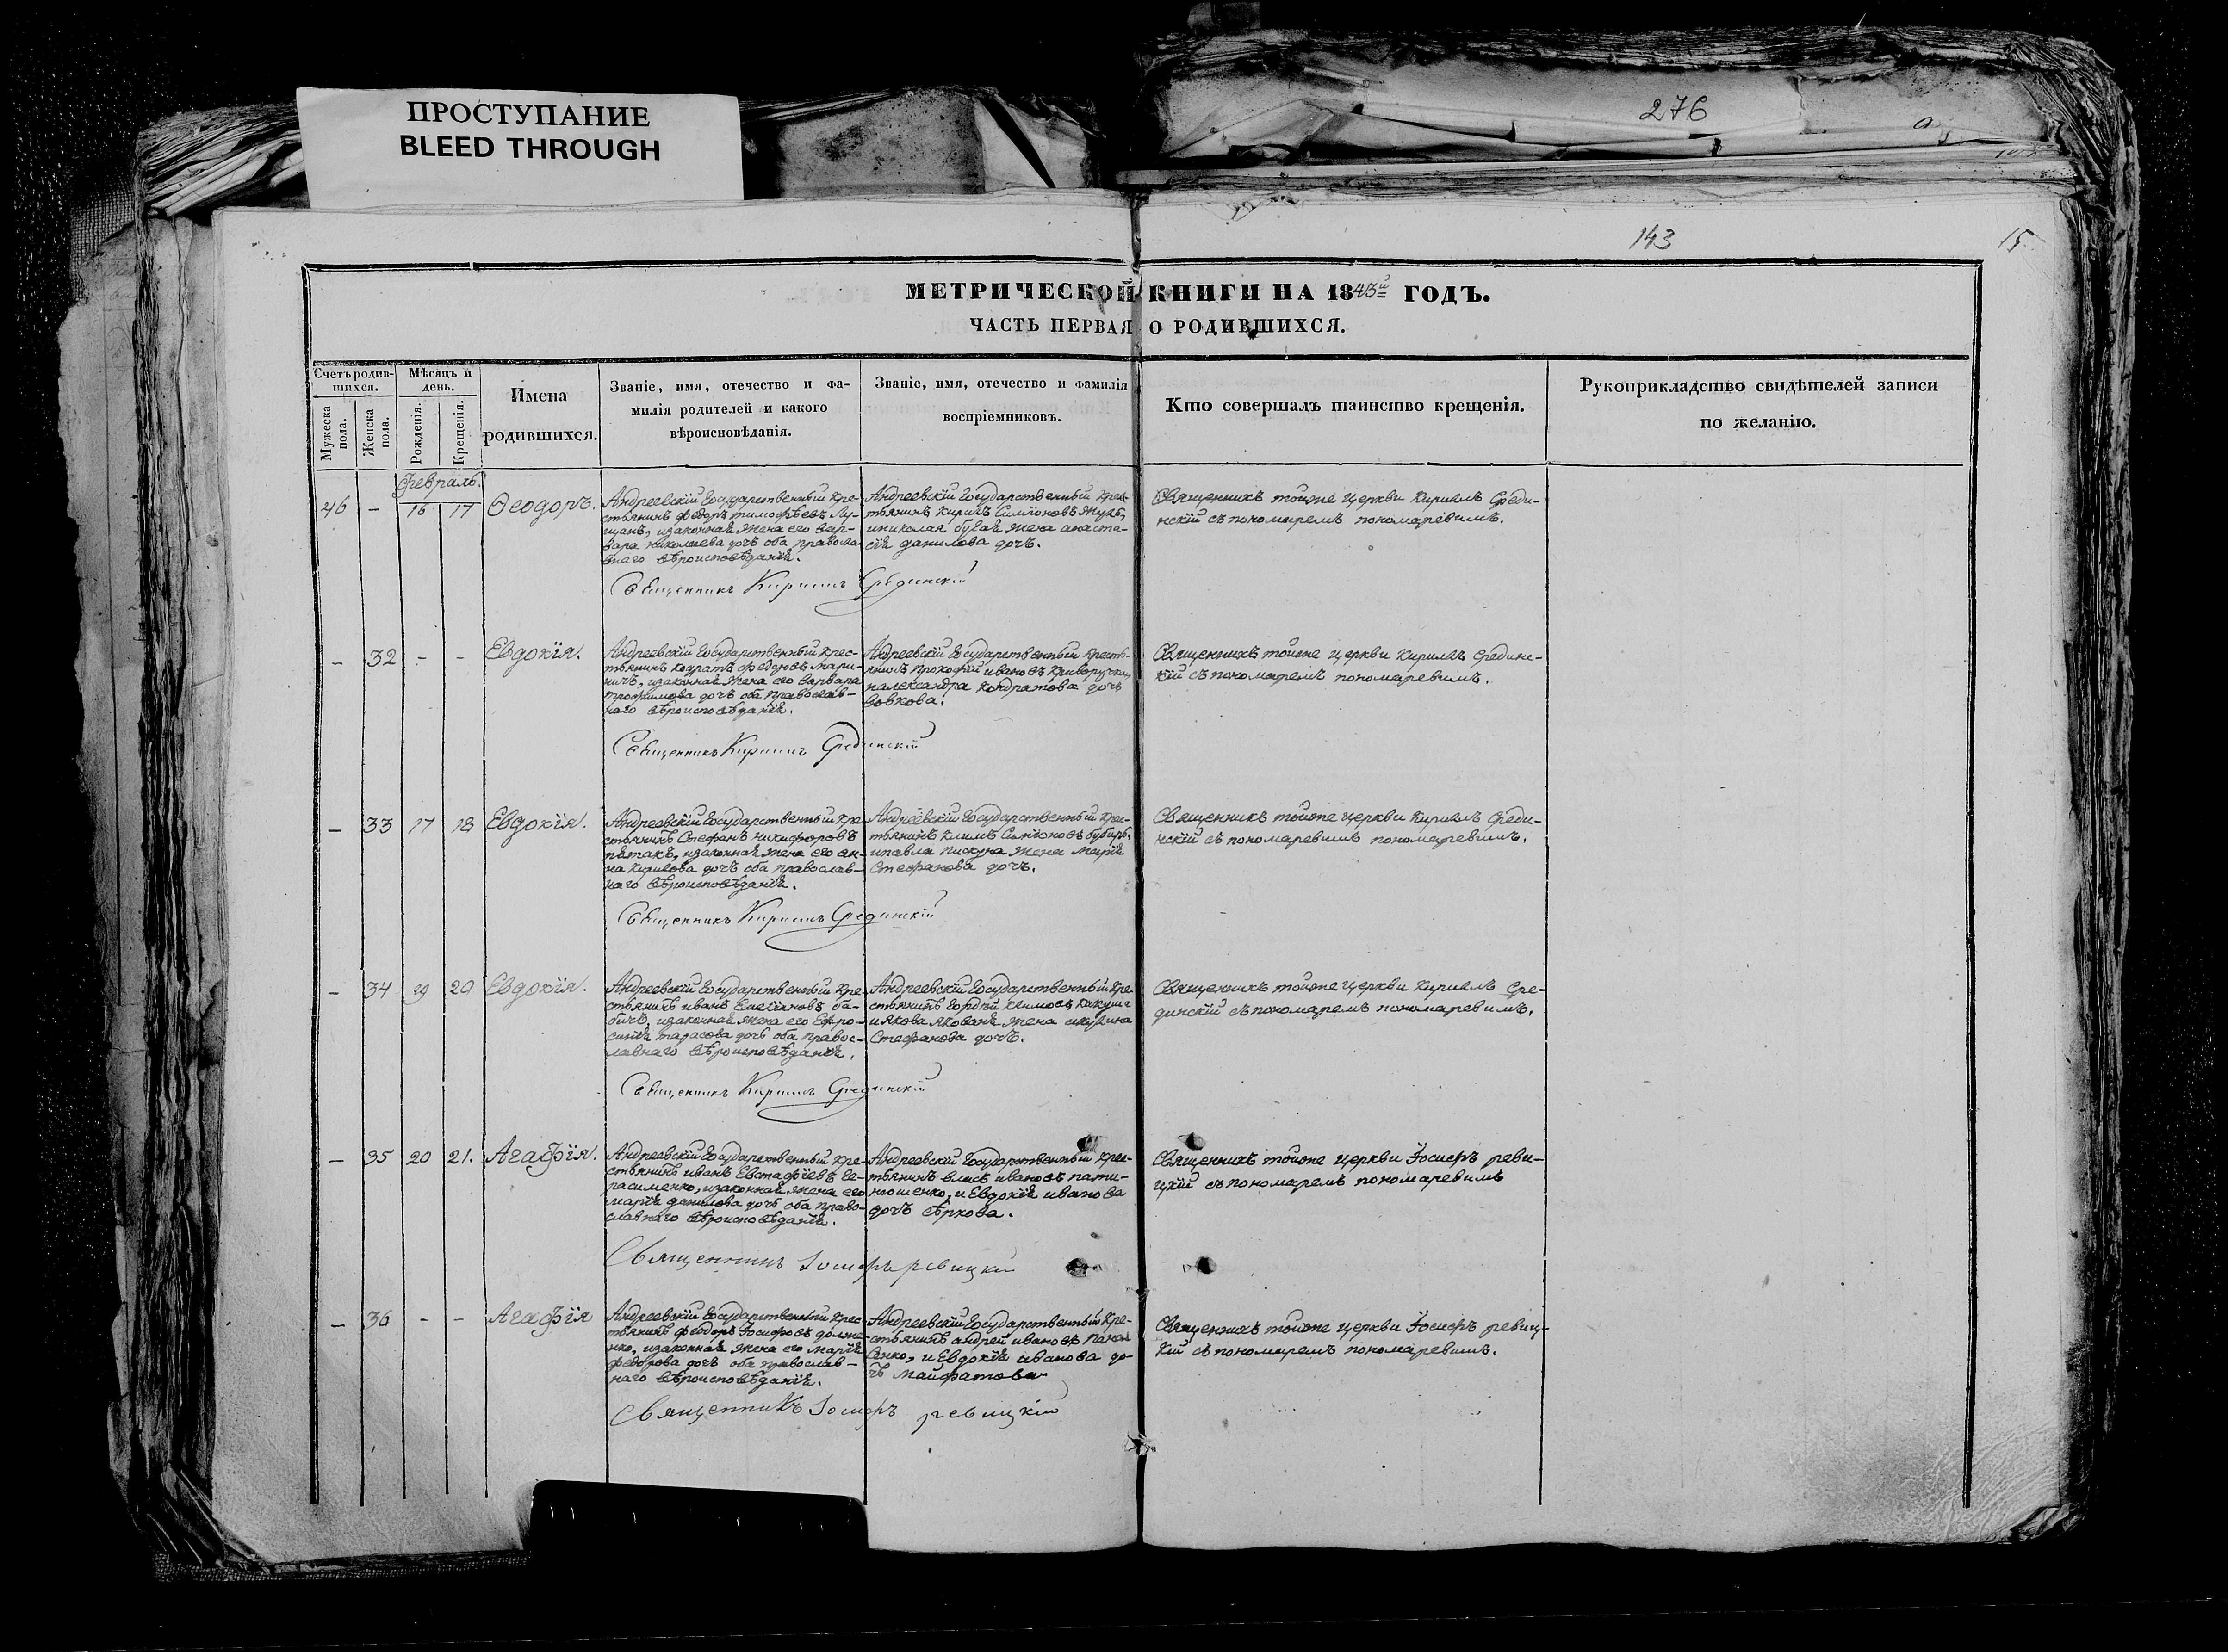 ПРОСТУПАНИЕ
BLEED THROUGH
276
143
15
МЕТРИЧЕСКОЙ КНИГИ НА 1843й ГОДЪ.
ЧАСТЬ ПЕРВАЯ О РОДИВШИХСЯ.
Счетъ родив-
шихся.
Мужеска пола.
Женска пола.
Мѣсяцъ и
день.
Рожденія.
Крещенія.
Имена
родившихся.
Званіе, имя, отечество и фа-
милія родителей и какого
вѣроисповѣданія.
Званіе, имя, отечество и фамилія
воспріемниковъ.
Кто совершалъ таинство крещенія.
Рукоприкладство свидѣтелей записи
по желанію.
Февраль.
46 - 16 17 Ѳеодоръ.
Андреевскій Государственный кре-
стьянинъ Федоръ Тимофѣевъ
изаконная жена его Вар-
вара Николаева дочъ оба правосла-
внаго вѣроисповѣданія.
Андреевскій Государственный крес-
тьянинъ Кирилъ Симіоновъ Жукъ,
иниколая жена анаста-
сія данилова дочъ.
Священникъ тойже церкви Кирилъ Среди-
нскій съ пономаремъ пономаревимъ.
Священникъ Кирилъ Срединскій
- 32 - - Евдокія.
Андреевскій Государственный крес-
тьянинъ Кодратъ Федоровъ Мари-
ничъ, изаконная жена его варвара
трофимова дочъ оба православ-
наго вѣроисповѣданія.
Андреевскій Государственный кресть-
янинъ Прокофій ивановъ
иалександра Кондратова дочъ
вовкова.
Священникъ тойже церкви Кирилъ Срединс-
кій съ пономаремъ пономаревимъ.
Священникъ Кирилъ Срединскій
- 33 17 18 Евдокія.
Андреевскій Государственный кре-
стьянинъ Стефанъ никифоровъ
пятакъ, изаконная жена его ан-
на Кирилова дочъ оба православ-
наго вѣроисповѣданія.
Андреевскій Государственный крес-
тьянинъ Климъ Симіоновъ
ипавла пискуна жена Марія
Стефанова дочъ.
Священникъ тойже церкви Кирилъ Среди-
нскій съ пономаревимъ пономаревимъ.
Священникъ Кирилъ Срединскій
- 34 19 20 Евдокія.
Андреевскій Государственный кре-
стьянинъ иванъ Емеліановъ ба-
бичъ, изаконная жена его Ефро-
синія тарасова дочъ оба правос-
лавнаго вѣроисповѣданія.
Андреевскій Государственный кре-
стьянинъ Гордѣй Климовъ
иякова жена
Стефанова дочъ.
Священникъ тойже церкви Кирилъ Сре-
динскій съ пономаремъ пономаревимъ.
Священникъ Кирилъ Срединскій
- 35 20 21. Агафія.
Андреевскій Государственный кре-
стьянинъ иванъ Евстафіевъ Ге-
расименко, изаконная жена его
марія данилова дочъ оба право-
славнаго вѣроисповѣданія.
Андреевскій Государственный крес-
тьянинъ власъ ивановъ пати-
нюшенко, и Евдокія иванова
дочъ сѣркова.
Священникъ тойже церкви Іосифъ реви-
цкій съ пономаремъ пономаревимъ
Священникъ Іосифъ ревицкій
- 36 - - Агафія
Андреевскій Государственный крес-
тьянинъ феодоръ Іосифовъ долже-
нко, изаконная жена его Марія
федорова дочъ оба православ-
наго вѣроисповѣданія.
Андреевскій Государственный кре-
стьянинъ андрей ивановъ
и Евдокія иванова до-
чъ майфатова
Священникъ тойже церкви Іосифъ ревиц-
кій съ пономаремъ пономаревимъ.
Священникъ Іосифъ ревицкій